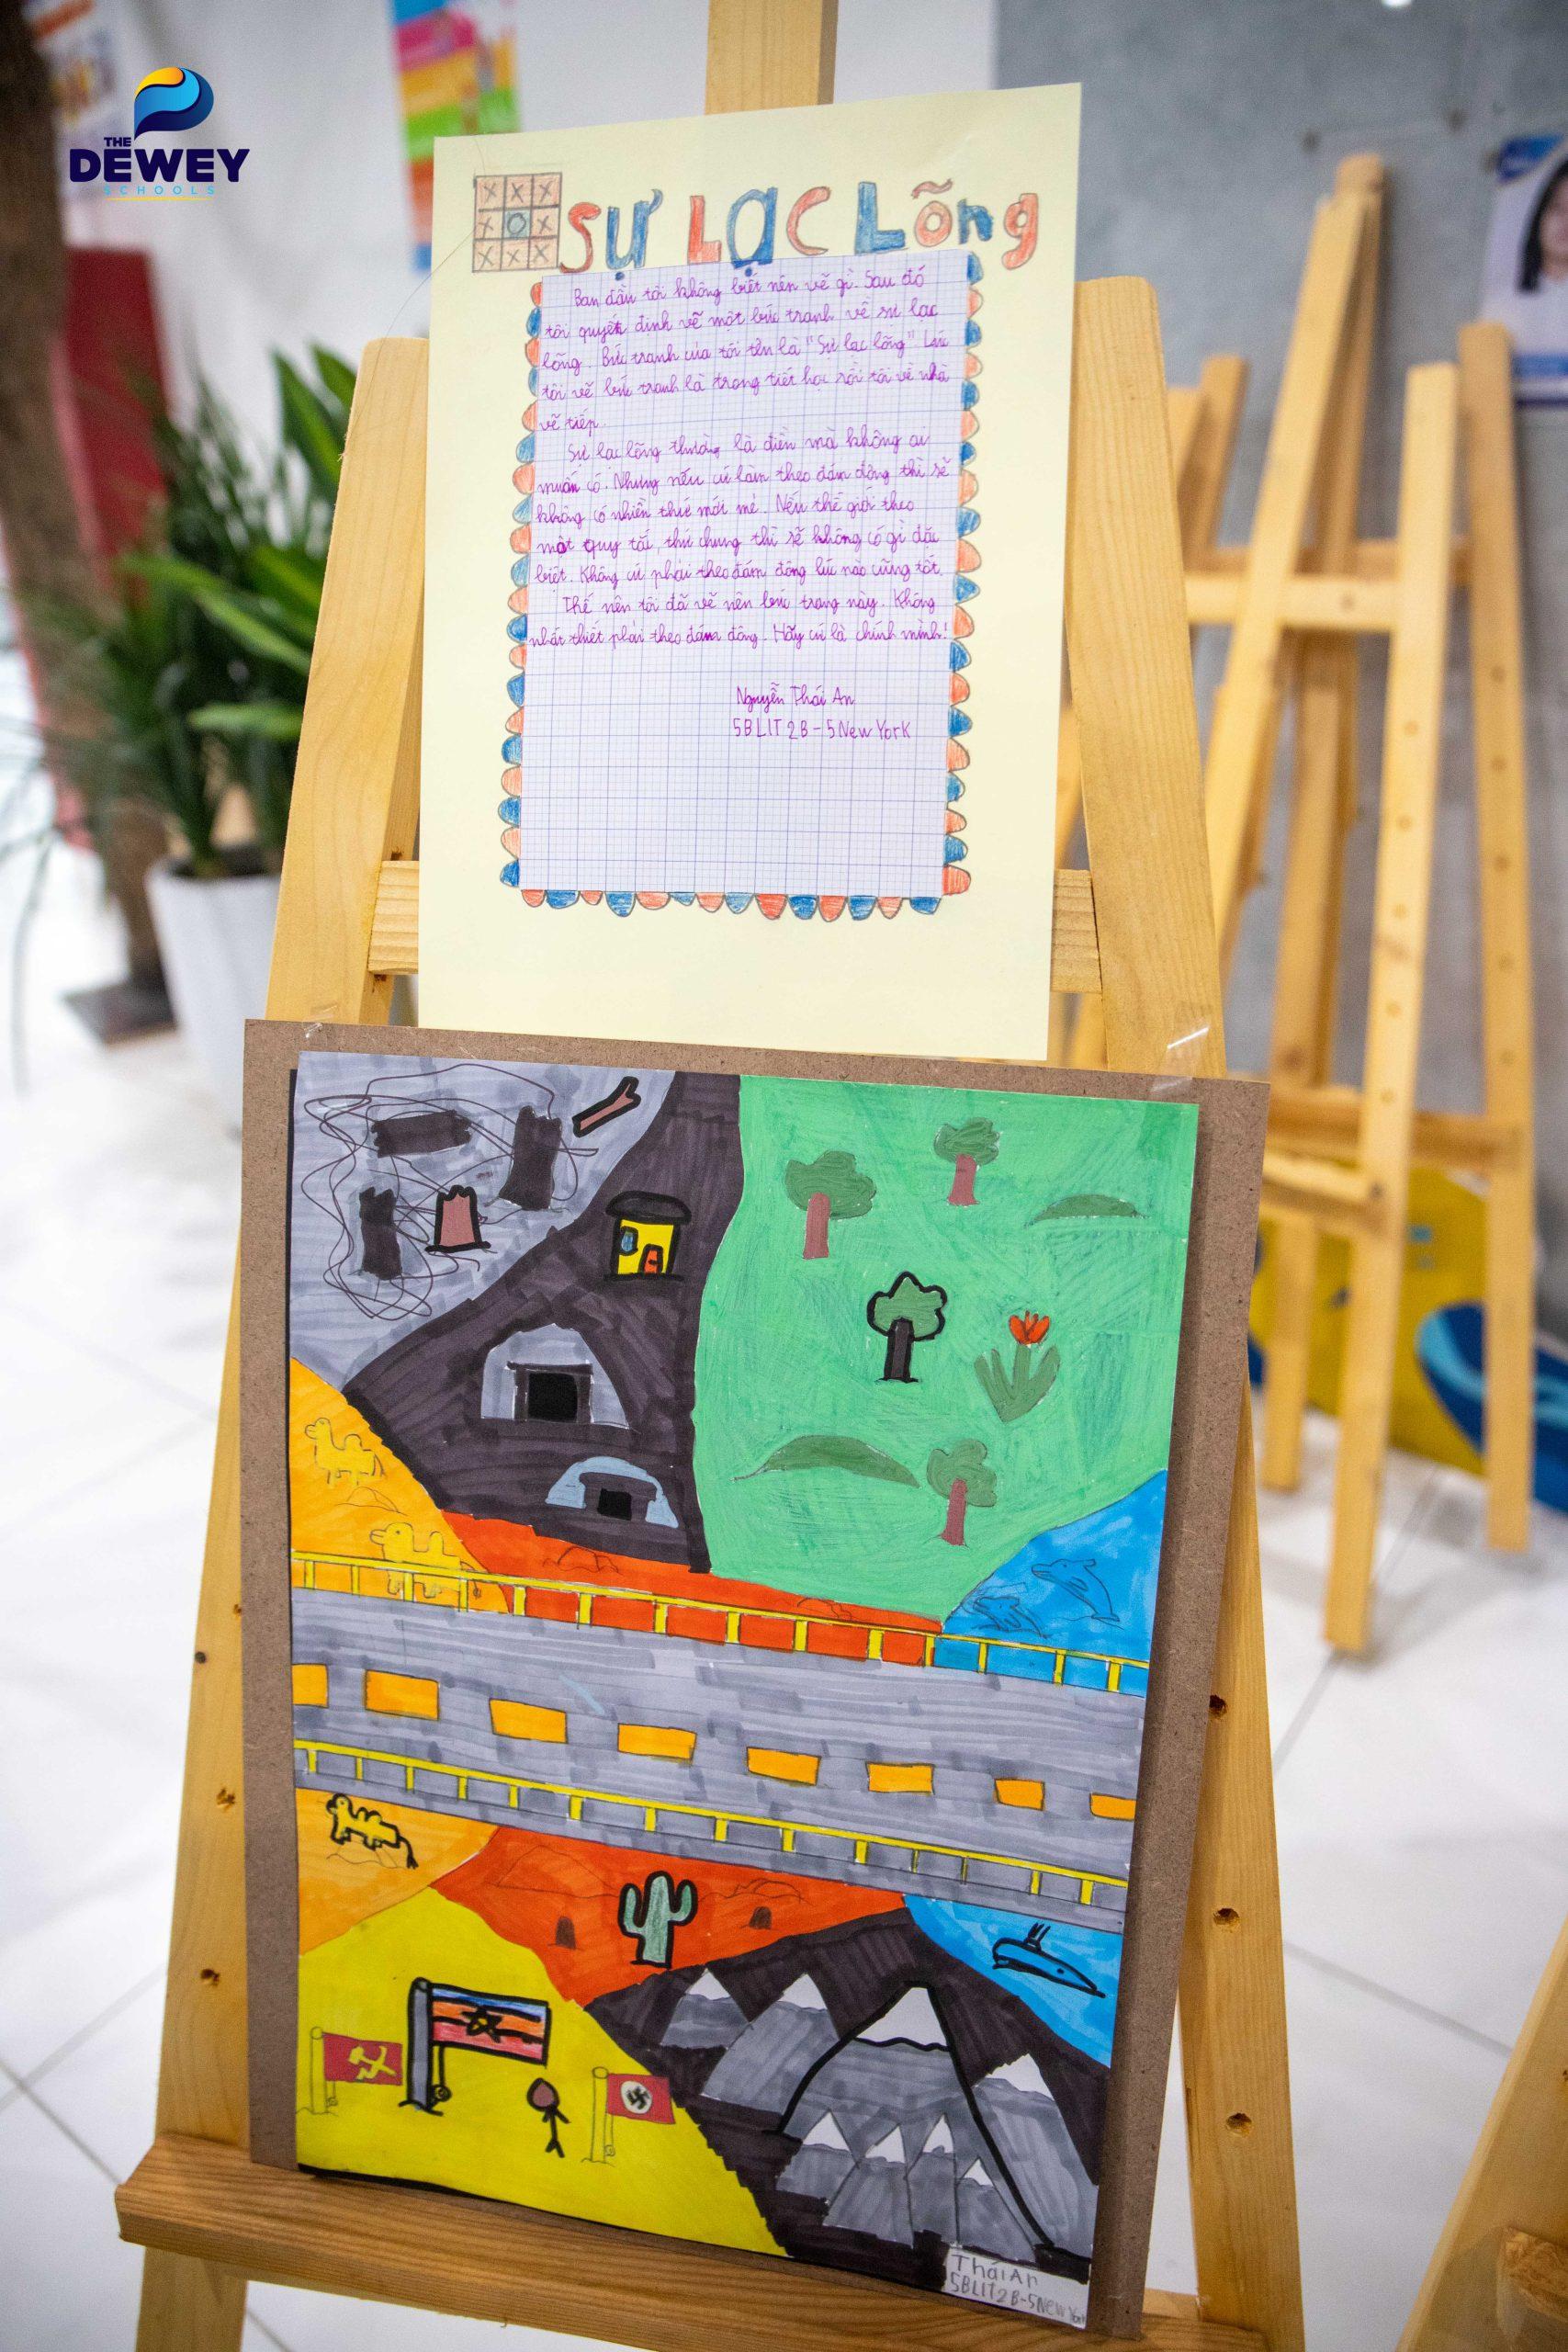 THE
DEWEY
SCHOOLS
X X X
X O X
X X X
Sự Lạc Lõng
Ban đầu tôi không biết nên vẽ gì. Sau đó
tôi quyết định vẽ một bức tranh về sự lạc
lõng. Bức tranh của tôi tên là "Sự lạc lõng". Lúc
tôi vẽ bức tranh là trong tiết học rồi tôi về nhà
vẽ tiếp.
Sự lạc lõng thường là điều mà không ai
muốn có. Nhưng nếu cứ làm theo đám đông thì sẽ
không có nhiều thứ mới mẻ. Nếu thế giới theo
một quy tắc, thứ chung thì sẽ không có gì đặc
biệt. Không cứ phải theo đám đông lúc nào cũng tốt.
Thế nên tôi đã vẽ nên bức trang này. Không
nhất thiết phải theo đám đông. Hãy cứ là chính mình!
Nguyễn Thái An
5BLIT2B - 5NewYork
Thái An
5BLIT2B-5New York